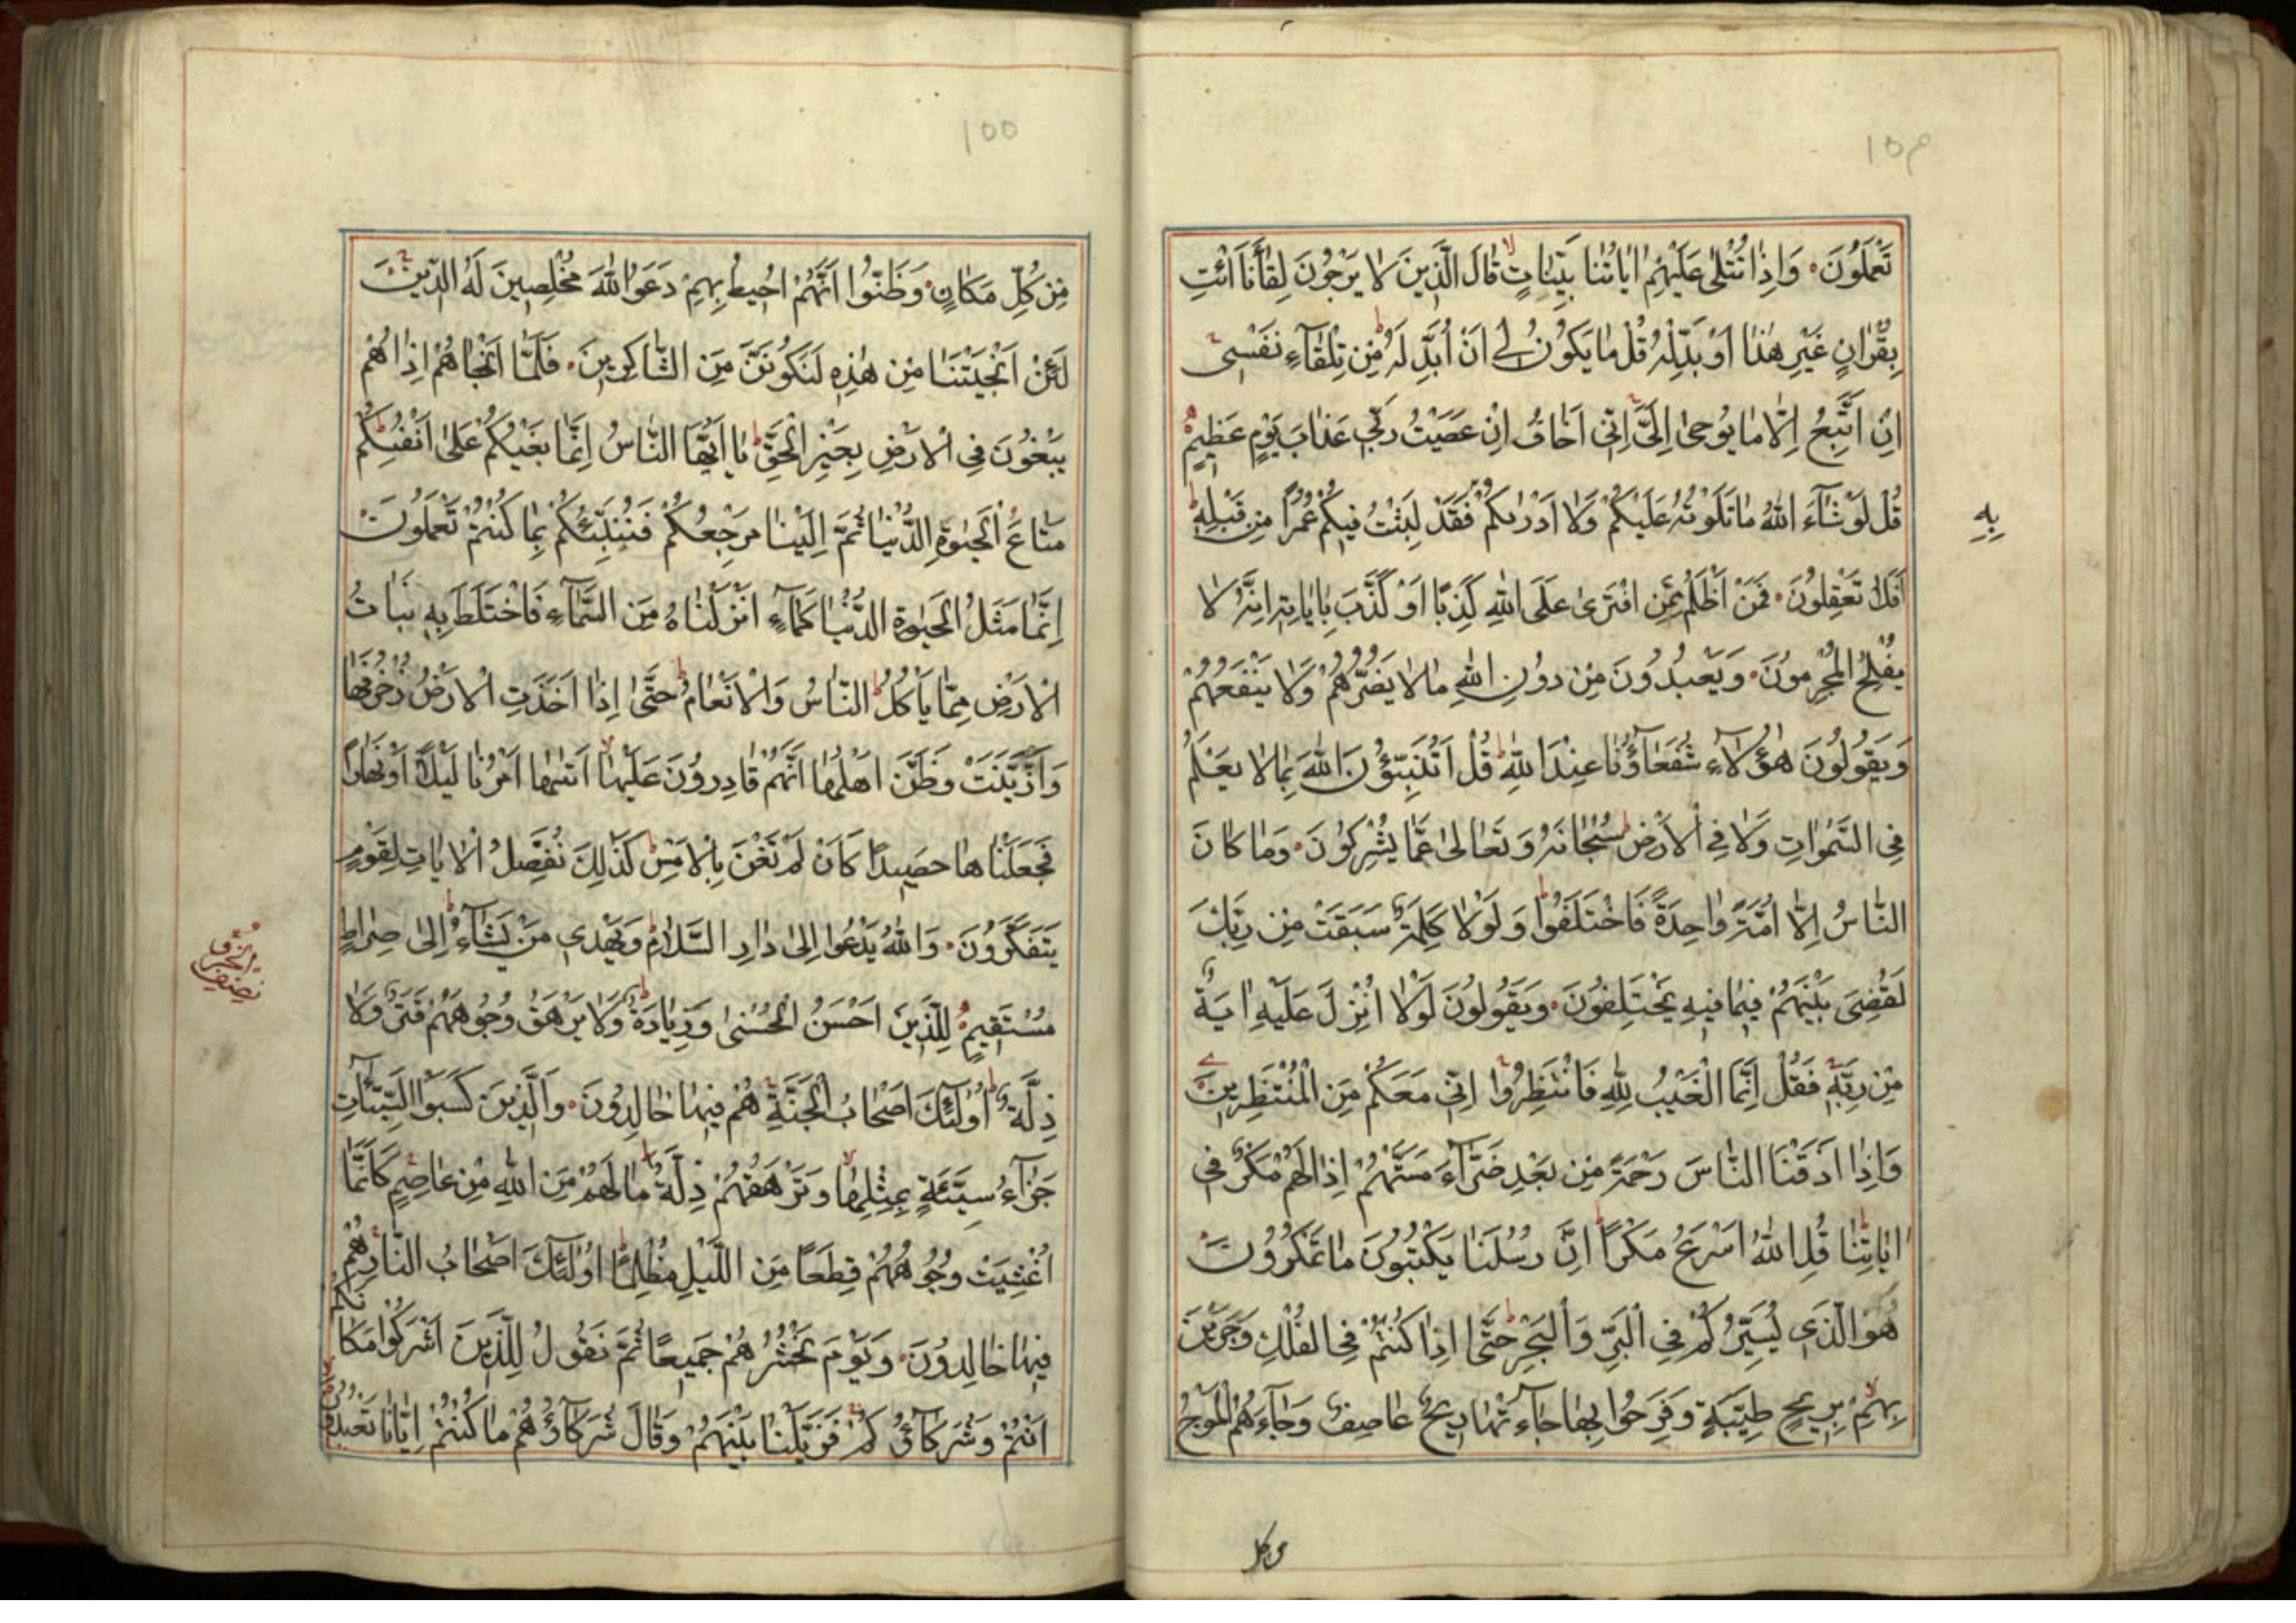 ١٥٤
تَعْمَلُونَ وَاِذَا تُتْلٰى عَلَيْهِمْ اٰيَاتُنَا بَيِّنَاتٍ قَالَ الَّذِينَ لَا يَرْجُونَ لِقَاءَنَا ائْتِ
بِقُرْاٰنٍ غَيْرِ هٰذَا اَوْ بَدِّلْهُ قُلْ مَا يَكُونُ لِي اَنْ اُبَدِّلَهُ مِنْ تِلْقَآءِ نَفْسِى
اِنْ اَتَّبِعُ اِلَّا مَا يُوحٰى اِلَىَّ اِنِّى اَخَافُ اِنْ عَصَيْتُ رَبِّي عَذَابَ يَوْمٍ عَظِيمٍ
قُلْ لَوْ شَآءَ اللهُ مَا تَلَوْتُهُ عَلَيْكُمْ وَلَا اَدْرٰىكُمْ فَقَدْ لَبِثْتُ فِيكُمْ عُمُرًا مِنْ قَبْلِهِ
بِهِ
اَفَلَا تَعْقِلُونَ فَمَنْ اَظْلَمُ مِمَّنِ افْتَرٰى عَلَى اللهِ كَذِبًا اَوْ كَذَّبَ بِاٰيَاتِهِ اِنَّهُ لَا
يُفْلِحُ الْمُجْرِمُونَ وَيَعْبُدُونَ مِنْ دُونِ اللهِ مَا لَا يَضُرُّهُمْ وَلَا يَنْفَعُهُمْ
وَيَقُولُونَ هٰؤُلَاءِ شُفَعَاؤُنَا عِنْدَ اللهِ قُلْ اَتُنَبِّؤُنَ اللهَ بِمَا لَا يَعْلَمُ
فِى السَّمٰوَاتِ وَلَا فِي الْاَرْضِ سُبْحَانَهُ وَتَعَالٰى عَمَّا يُشْرِكُونَ وَمَا كَانَ
النَّاسُ اِلَّا اُمَّةً وَاحِدَةً فَاخْتَلَفُوا وَلَوْلَا كَلِمَةٌ سَبَقَتْ مِنْ رَبِّكَ
لَقُضِىَ بَيْنَهُمْ فِيمَا فِيهِ يَخْتَلِفُونَ وَيَقُولُونَ لَوْلَا اُنْزِلَ عَلَيْهِ اٰيَةٌ
مِنْ رَبِّهِ فَقُلْ اِنَّمَا الْغَيْبُ لِلّٰهِ فَانْتَظِرُوا اِنِّى مَعَكُمْ مِنَ الْمُنْتَظِرِينَ
وَاِذَا اَذَقْنَا النَّاسَ رَحْمَةً مِنْ بَعْدِ ضَرَّآءَ مَسَّتْهُمْ اِذَا لَهُمْ مَكْرٌ فِى
اٰيَاتِنَا قُلِ اللهُ اَسْرَعُ مَكْرًا اِنَّ رُسُلَنَا يَكْتُبُونَ مَا تَمْكُرُونَ
هُوَ الَّذِى يُسَيِّرُكُمْ فِي الْبَرِّ وَالْبَحْرِ حَتّٰى اِذَا كُنْتُمْ فِى الْفُلْكِ وَجَرَيْنَ
بِهِمْ بِرِيحٍ طَيِّبَةٍ وَفَرِحُوا بِهَا جَآءَتْهَا رِيحٌ عَاصِفٌ وَجَآءَهُمُ الْمَوْجُ
من كل
١٥٥
مِنْ كُلِّ مَكَانٍ وَظَنُّوا اَنَّهُمْ اُحِيطَ بِهِمْ دَعَوُا اللهَ مُخْلِصِينَ لَهُ الدِّينَ
لَئِنْ اَنْجَيْتَنَا مِنْ هٰذِهِ لَنَكُونَنَّ مِنَ الشَّاكِرِينَ فَلَمَّا اَنْجَاهُمْ اِذَا هُمْ
يَبْغُونَ فِي الْاَرْضِ بِغَيْرِ الْحَقِّ يَا اَيُّهَا النَّاسُ اِنَّمَا بَغْيُكُمْ عَلٰى اَنْفُسِكُمْ
مَتَاعَ الْحَيٰوةِ الدُّنْيَا ثُمَّ اِلَيْنَا مَرْجِعُكُمْ فَنُنَبِّئُكُمْ بِمَا كُنْتُمْ تَعْمَلُونَ
اِنَّمَا مَثَلُ الْحَيٰوةِ الدُّنْيَا كَمَآءٍ اَنْزَلْنَاهُ مِنَ السَّمَآءِ فَاخْتَلَطَ بِهِ نَبَاتُ
الْاَرْضِ مِمَّا يَأْكُلُ النَّاسُ وَالْاَنْعَامُ حَتّٰى اِذَا اَخَذَتِ الْاَرْضُ زُخْرُفَهَا
وَازَّيَّنَتْ وَظَنَّ اَهْلُهَا اَنَّهُمْ قَادِرُونَ عَلَيْهَا اَتٰىهَا اَمْرُنَا لَيْلًا اَوْ نَهَارًا
فَجَعَلْنَاهَا حَصِيدًا كَاَنْ لَمْ تَغْنَ بِالْاَمْسِ كَذٰلِكَ نُفَصِّلُ الْاٰيَاتِ لِقَوْمٍ
يَتَفَكَّرُونَ وَاللهُ يَدْعُوا اِلٰى دَارِ السَّلَامِ وَيَهْدِي مَنْ يَشَآءُ اِلٰى صِرَاطٍ
نِصْفُ الْحِزْبِ
مُسْتَقِيمٍ لِلَّذِينَ اَحْسَنُ الْحُسْنٰى وَزِيَادَةٌ وَلَا يَرْهَقُ وُجُوهَهُمْ قَتَرٌ وَلَا
ذِلَّةٌ اُولٰئِكَ اَصْحَابُ الْجَنَّةِ هُمْ فِيهَا خَالِدُونَ وَالَّذِينَ كَسَبُوا السَّيِّئَاتِ
جَزَآءُ سَيِّئَةٍ بِمِثْلِهَا وَتَرْهَقُهُمْ ذِلَّةٌ مَا لَهُمْ مِنَ اللهِ مِنْ عَاصِمٍ كَاَنَّمَا
اُغْشِيَتْ وُجُوهُهُمْ قِطَعًا مِنَ اللَّيْلِ مُظْلِمًا اُولٰئِكَ اَصْحَابُ النَّارِ هُمْ
فِيهَا خَالِدُونَ وَيَوْمَ نَحْشُرُهُمْ جَمِيعًا ثُمَّ نَقُولُ لِلَّذِينَ اَشْرَكُوا مَكَانَكُمْ
اَنْتُمْ وَشُرَكَآؤُكُمْ فَزَيَّلْنَا بَيْنَهُمْ وَقَالَ شُرَكَآؤُهُمْ مَا كُنْتُمْ اِيَّانَا تَعْبُدُونَ